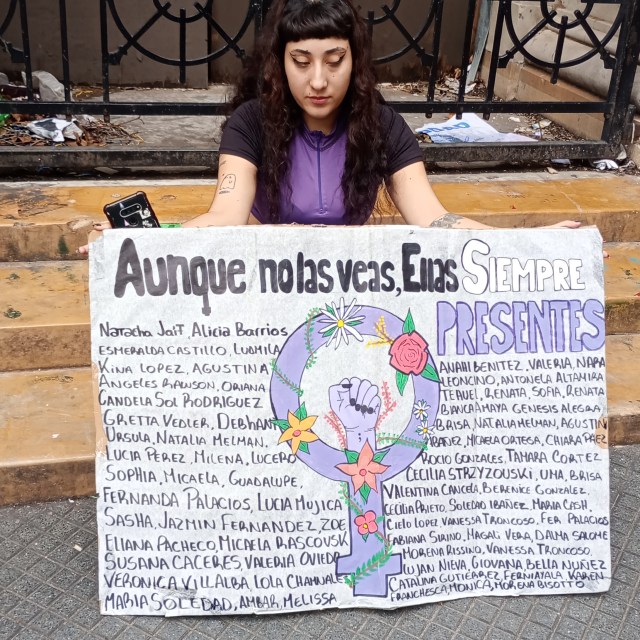 Aunque no las veas, Ellas SIEMPRE
PRESENTES
Natacha Jait, Alicia Barrios
ESMERALDA CASTILLO, LUDMILA
KINA LOPEZ, AGUSTINA
ANGELES RAWSON, ORIANA
CANDELA SOL RODRIGUEZ
GRETTA VEDLER, DEBHANI
URSULA, NATALIA MELMAN,
LUCIA PEREZ, MILENA, LUCERO
SOPHIA, MICAELA, GUADALUPE,
FERNANDA PALACIOS, LUCIA MUJICA
SASHA, JAZMIN FERNANDEZ, ZOE
ELIANA PACHECO, MICAELA RASCOUSK
SUSANA CACERES, VALERIA OVIEDO
VERONICA VILLALBA, LOLA CHAMNALE
MARIA SOLEDAD, AMBAR, MELISSA
ANAHI BENITEZ, VALERIA, NARA
LEONCINO, ANTONELA ALTAMIRA
TERUEL, RENATA, SOFIA, RENATA
BIANCA AMAYA GENESIS ALEGRA
BRISA, NATALIA MELMAN, AGUSTIN
IBAÑEZ, MICAELA ORTEGA, CHIARA PAEZ
ROCIO GONZALES, TAMARA CORTEZ
CECILIA STRZYZOUSKI, UMA, BRISA
VALENTINA CANCELA, BERENICE GONZALEZ
CECILIA PRIETO, SOLEDAD IBAÑEZ, MARIA CASH,
CIELO LOPEZ, VANESSA TRONCOSO, FER PALACIOS
FABIANA SIRINO, MAGALI VERA, DALMA SALOME
MORENA RISSINO, VANESSA TRONCOSO,
LUJAN NIEVA, GIOVANA BELLA NUÑEZ
CATALINA GUTIÉRREZ, FERNIAYALA, KAREN
FRANCHESCA, MONICA, MORENA BISOTTO